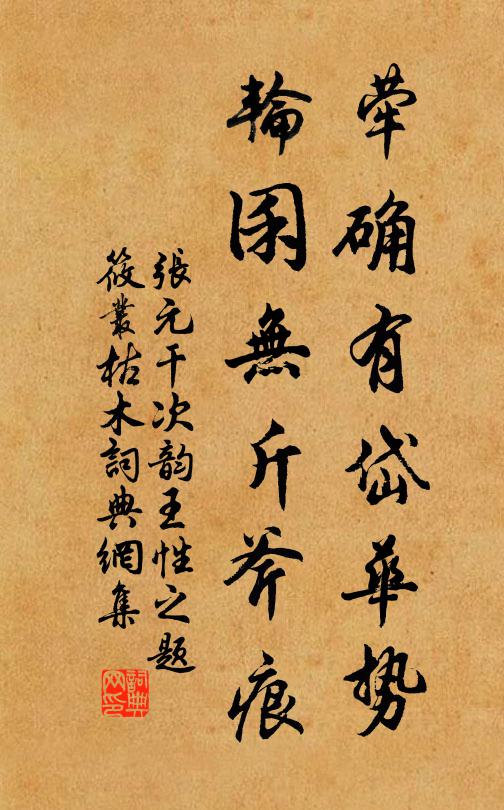 荦确有岱華势
輪囷無斤斧痕
張元干次韵王性之題
筱叢枯木詞典網集
詞典
网印